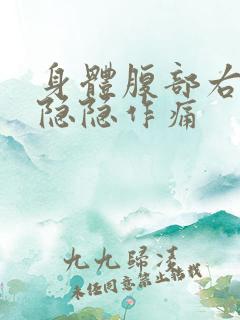 身體腹部右
隐隐作痛
九九歸淩
未经同意禁止转载